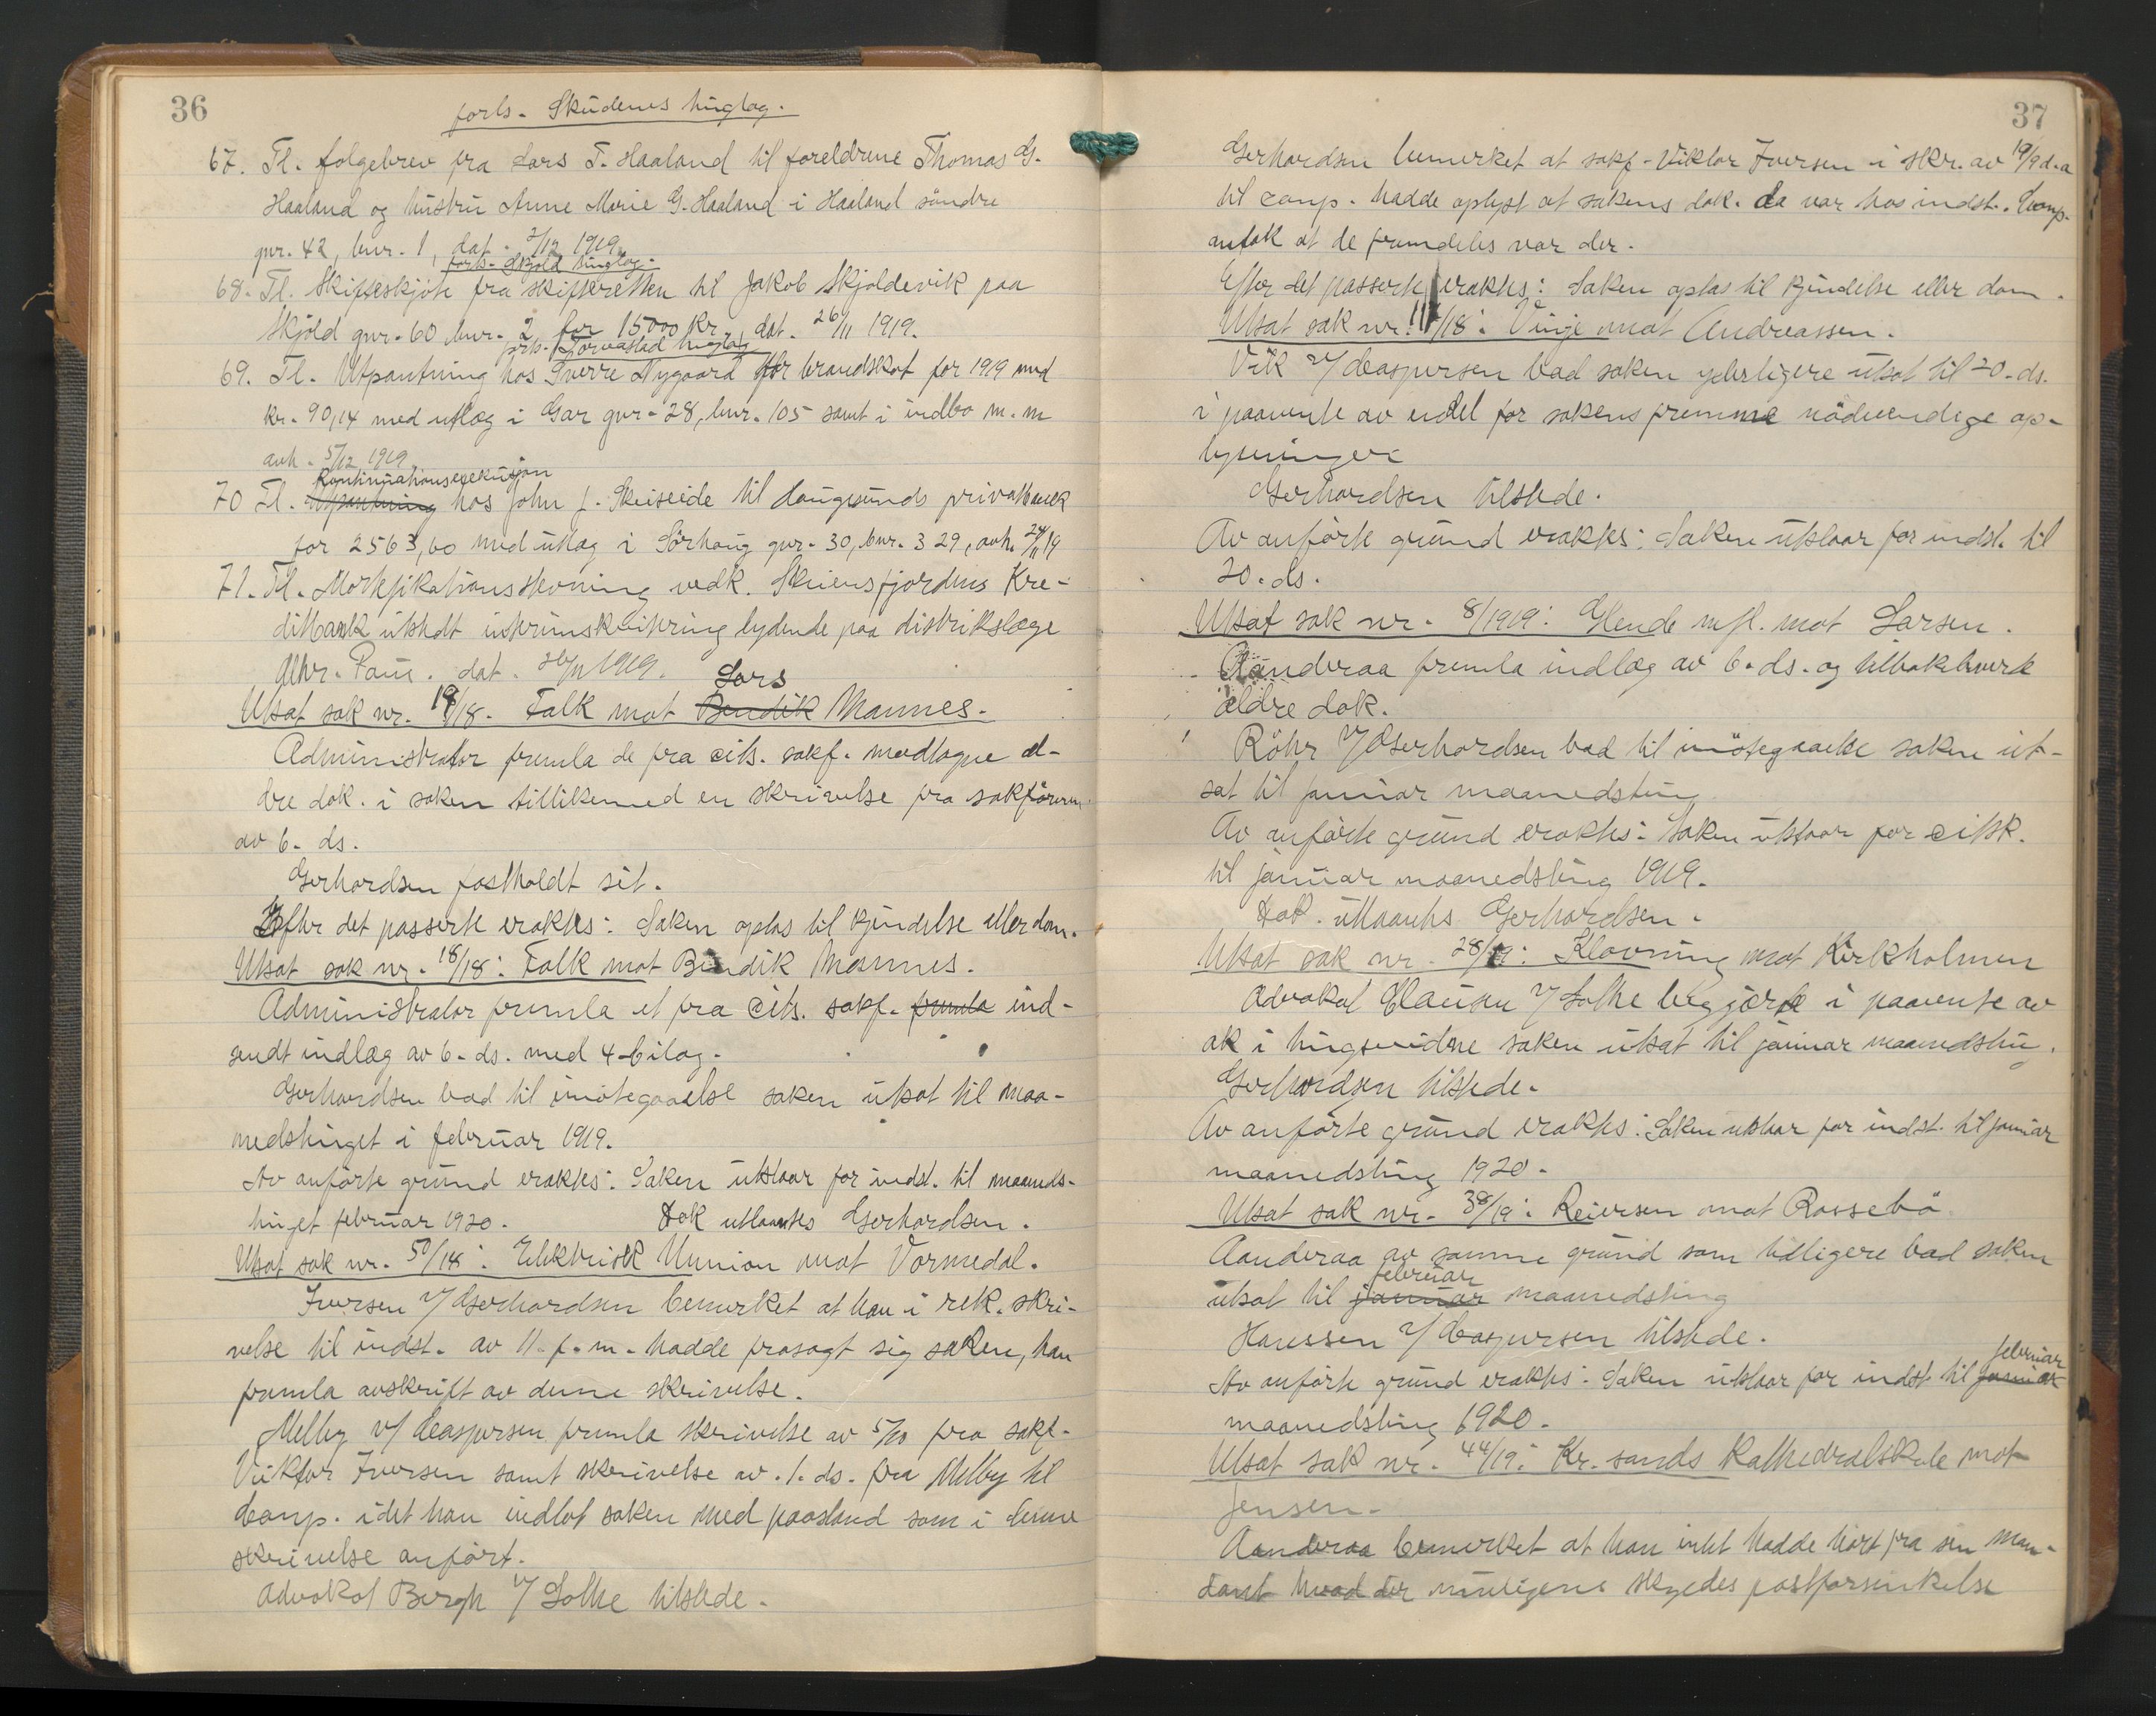 36
forts. Skudenes tinglag.
67. Tl. følgebrev fra Lars T. Haaland til foreldrene Thomas G.
Haaland og hustru Anne Marie G. Haaland i Haaland søndre
gnr. 42, bnr. 1, dat. 2/12 1919.
forts. Skjold tinglag.
68. Tl. Skifteskjøte fra skifteretten til Jakob Skjoldevik paa
Skjold gnr. 60 bnr. 2 for 15000 kr., dat. 26/11 1919.
forts. Torvastad tinglag
69. Tl. Utpantning hos Sverre Nygaard for brandskat for 1919 med
kr. 90,14 med utlæg i Gar gnr. 28, bnr. 105 samt i indbo m.m
avh. 5/12 1919.
Kontinuationsexekution
70 Tl. Utpantning hos John J. Skeiseide til Haugesunds privatbank
for 2563,60 med utlæg i Sørhaug gnr. 30, bnr. 329, avh. 24/11 19
71. Tl. Mortifikationsstevning vedk. Skiensfjordens Kre-
ditbank utstedt interimskvitering lydende paa distriktslæge
Chr. Paus. dat. 26/11 1919.
Lars
Utsat sak nr. 19/18. Falk mot Bendik Mannes.
Administrator fremla de fra cits. sakf. modtagne æl-
dre dok. i saken tillikemed en skrivelse fra sakføreren
av 6. ds.
Gerhardsen fastholdt sit.
Efter det passerte eraktes: Saken optas til kjendelse eller dom.
Utsat sak nr. 18/18: Falk mot Bendik Mannes.
Administrator fremla et fra cits. sakf. fremla ind-
sendt indlæg av 6. ds. med 4 bilag.
Gerhardsen bad til imøtegaaelse saken utsat til maa-
nedstinget i februar 1919.
Av anførte grund eraktes: Saken utstaar for indst. til maaneds-
tinget februar 1920. Dok utlaantes Gerhardsen.
Utsat sak nr. 50/18: Elektrisk Union mot Vormedal.
Iversen v/ Gerhardsen bemerket at han i rek. skri-
velse til indst. av 11. f.m. hadde frasagt sig saken, han
fremla avskrift av denne skrivelse.
Melby v/ Caspersen fremla skrivelse av 5/10 fra sakf.
Viktor Iversen samt skrivelse av 1. ds. fra Melby til
Comp. idet han indlot saken med paastand som i denne
skrivelse anført.
Advokat Bergh v/ Lothe tilstede.
37
Gerhardsen bemerket at sakf. Viktor Iversen i skr. av 19/9 d.a
til comp. hadde oplyst at sakens dok. da var hos indst. Comp.
antok at de fremdeles var der.
Efter det passerte eraktes: Saken optas til kjendelse eller dom.
Utsat sak nr. 117/18: Vinje mot Andreassen.
Vik v/ Caspersen bad saken yderligere utsat til 20. ds.
i paavente av endel for sakens fremme nødvendige op-
lysninger
Gerhardsen tilstede.
Av anførte grund eraktes: Saken utstaar for indst. til
20. ds.
Utsat sak nr. 8/1919: Glende mfl. mot Larsen.
Aanderaa fremla indlæg av 6. ds. og tilbakeleverte
ældre dok.
Röhr v/ Gerhardsen bad til imøtegaaelse saken ut-
sat til januar maanedsting
Av anførte grund eraktes: Saken utstaar for citk.
til januar maanedsting 1919.
Dok. utlaantes Gerhardsen.
Utsat sak nr. 28/19: Klovning mot Kirkholmen
Advokat Clausen v/ Lothe begjærte i paavente av
akt i tingsvidne saken utsat til januar maanedsting.
Gerhardsen tilstede.
Av anførte grund eraktes: Saken utstaar for indst. til januar
maanedsting 1920.
Utsat sak nr. 38/19: Reiersen mot Rossebø.
Aanderaa av samme grund som tidligere bad saken
februar
utsat til januar maanedsting
Hanssen v/ Caspersen tilstede.
februar
Av anførte grund eraktes: Saken utstaar for indst. til januar
maanedsting 1920.
Utsat sak nr. 44/19: Kr. sands Kathedralskole mot
Jensen.
Aanderaa bemerket at han intet hadde hørt fra sin man-
dant hvad der muligens skyldes postforsinkelse